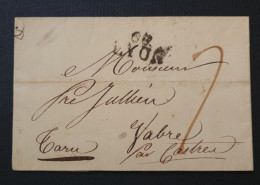 68
LYON
Monsieur
Pré Jullien
Vabre
Tarn par Castres
7